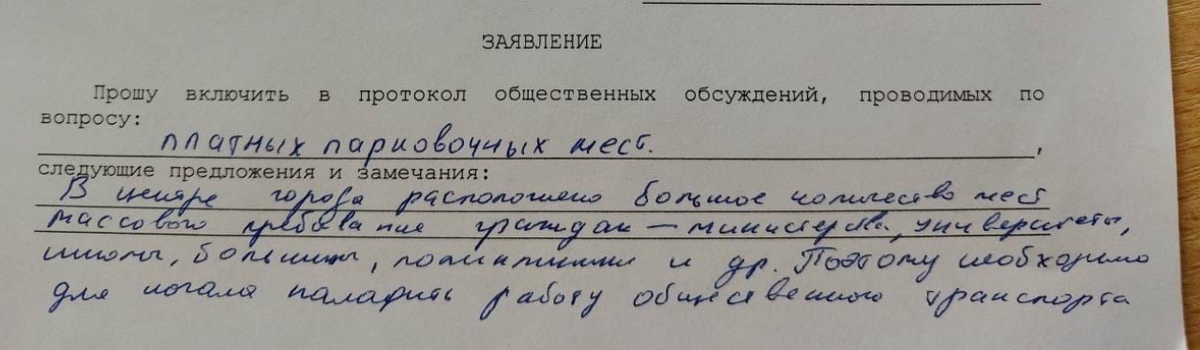 ЗАЯВЛЕНИЕ
Прошу включить в протокол общественных обсуждений, проводимых по
вопросу:
платных парковочных мест.
,
следующие предложения и замечания:
В центре города расположено большое количество мест
массового пребывание граждан – министерства, университеты,
школы, больницы, поликлиники и др. Поэтому необходимо
для начала наладить работу общественного транспорта